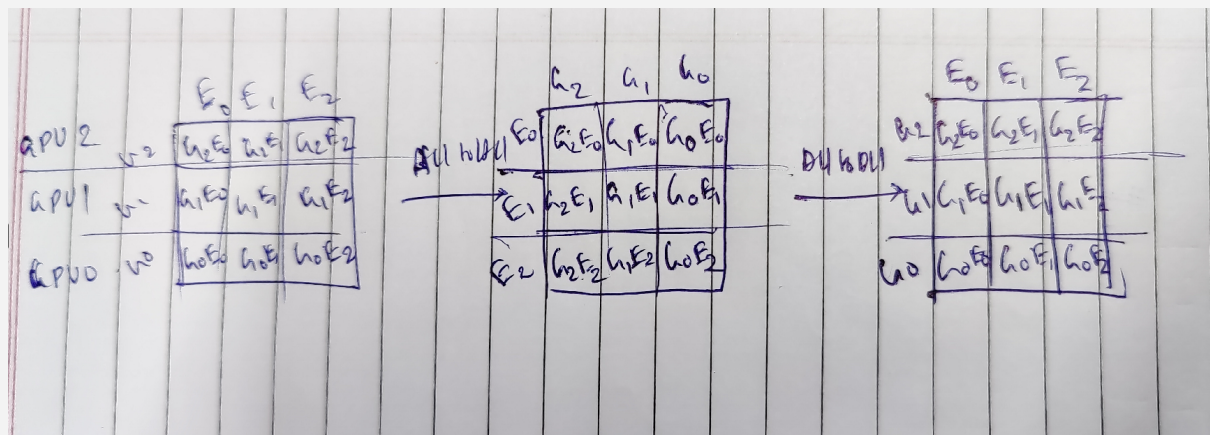 E0 E1 E2
GPU2 G2 G2E0 G2E1 G2E2
GPU1 G1 G1E0 G1E1 G1E2
GPU0 G0 G0E0 G0E1 G0E2
All to All
G2 G1 G0
E0 G2E0 G1E0 G0E0
E1 G2E1 G1E1 G0E1
E2 G2E2 G1E2 G0E2
All to All
E0 E1 E2
G2 G2E0 G2E1 G2E2
G1 G1E0 G1E1 G1E2
G0 G0E0 G0E1 G0E2